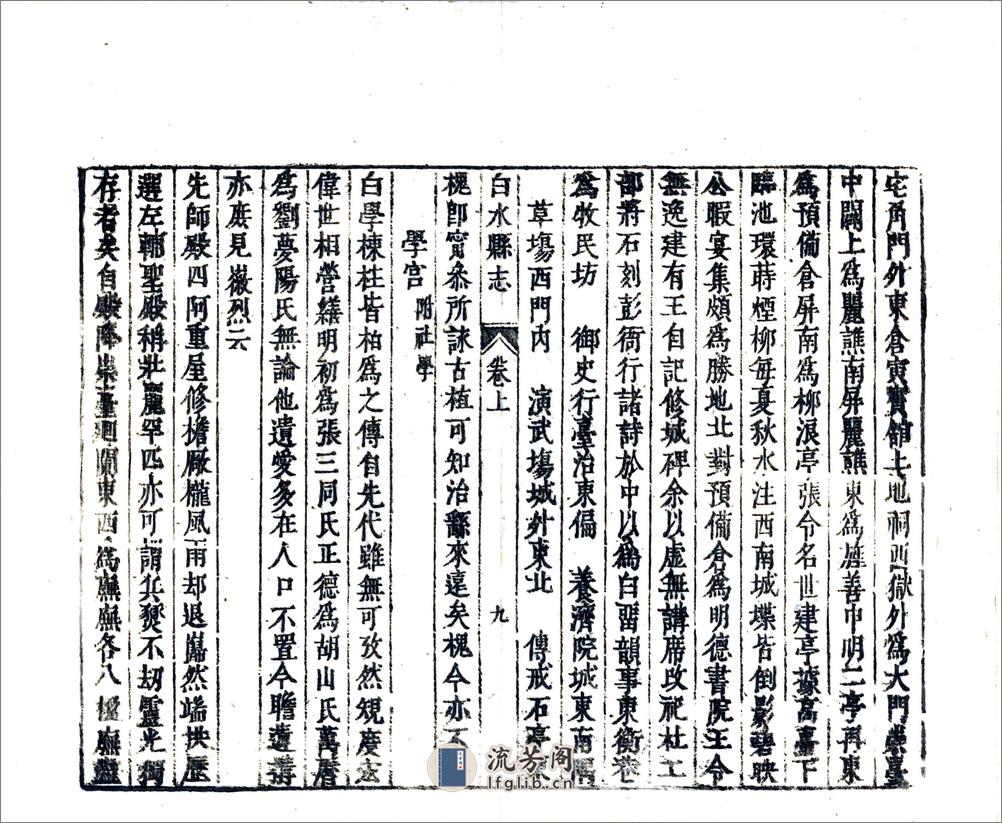 宅角門外東倉東賓館土地祠西獄外爲大門叢臺
中闢上爲麗譙南屏麗譙東爲旌善申明二亭再東
爲預備倉屏南爲柳浪亭張令名世建亭據高臺下
臨池環蒔煙柳每夏秋水注西南城堞皆倒影碧映
公暇宴集頗爲勝地北對預備倉爲明德書院王令
無逸建有王自記修城碑余以虛無講席改祀杜工
部將石刻彭衙行諸詩於中以爲白留韻事東衡巷
爲牧民坊 御史行臺治東偏 養濟院城東南隅
草塲西門內 演武塲城外東北 傳戒石亭
白水縣志 卷上 九
槐卽甯叅所詠古植可知治繇來遠矣槐今亦不
學宫 附社學
白學棟柱皆柏爲之傳自先代雖無可攷然規度宏
偉世相營繕明初爲張三同氏正德爲胡山氏萬曆
爲劉夢陽氏無論他遺愛多在人口不置今瞻遺搆
亦庶見嶶烈云
先師殿四阿重屋修檐厰櫳風雨却退巋然端拱歷
選左輔聖殿稱壯麗罕匹亦可謂兵燹不刼靈光獨
存者矣自殿降崇臺廻闌東西爲廡廡各八楹廡盡
流芳阁
lfglib.cn